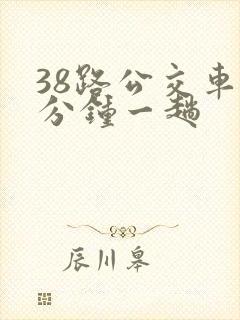 38路公交车
分鍾一趟
辰川皋